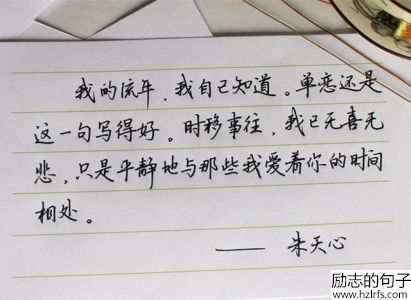 我的流年，我自己知道。单恋还是
这一句写得好。时移事往，我已无喜无
悲，只是平静地与那些我爱着你的时间
相处。
——朱天心
励志的句子
www.hzlrfs.com